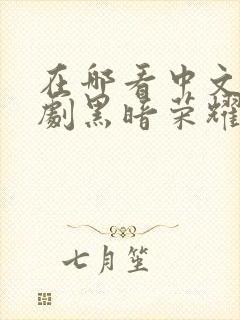 在哪看中文
劇黑暗荣耀
七月笙